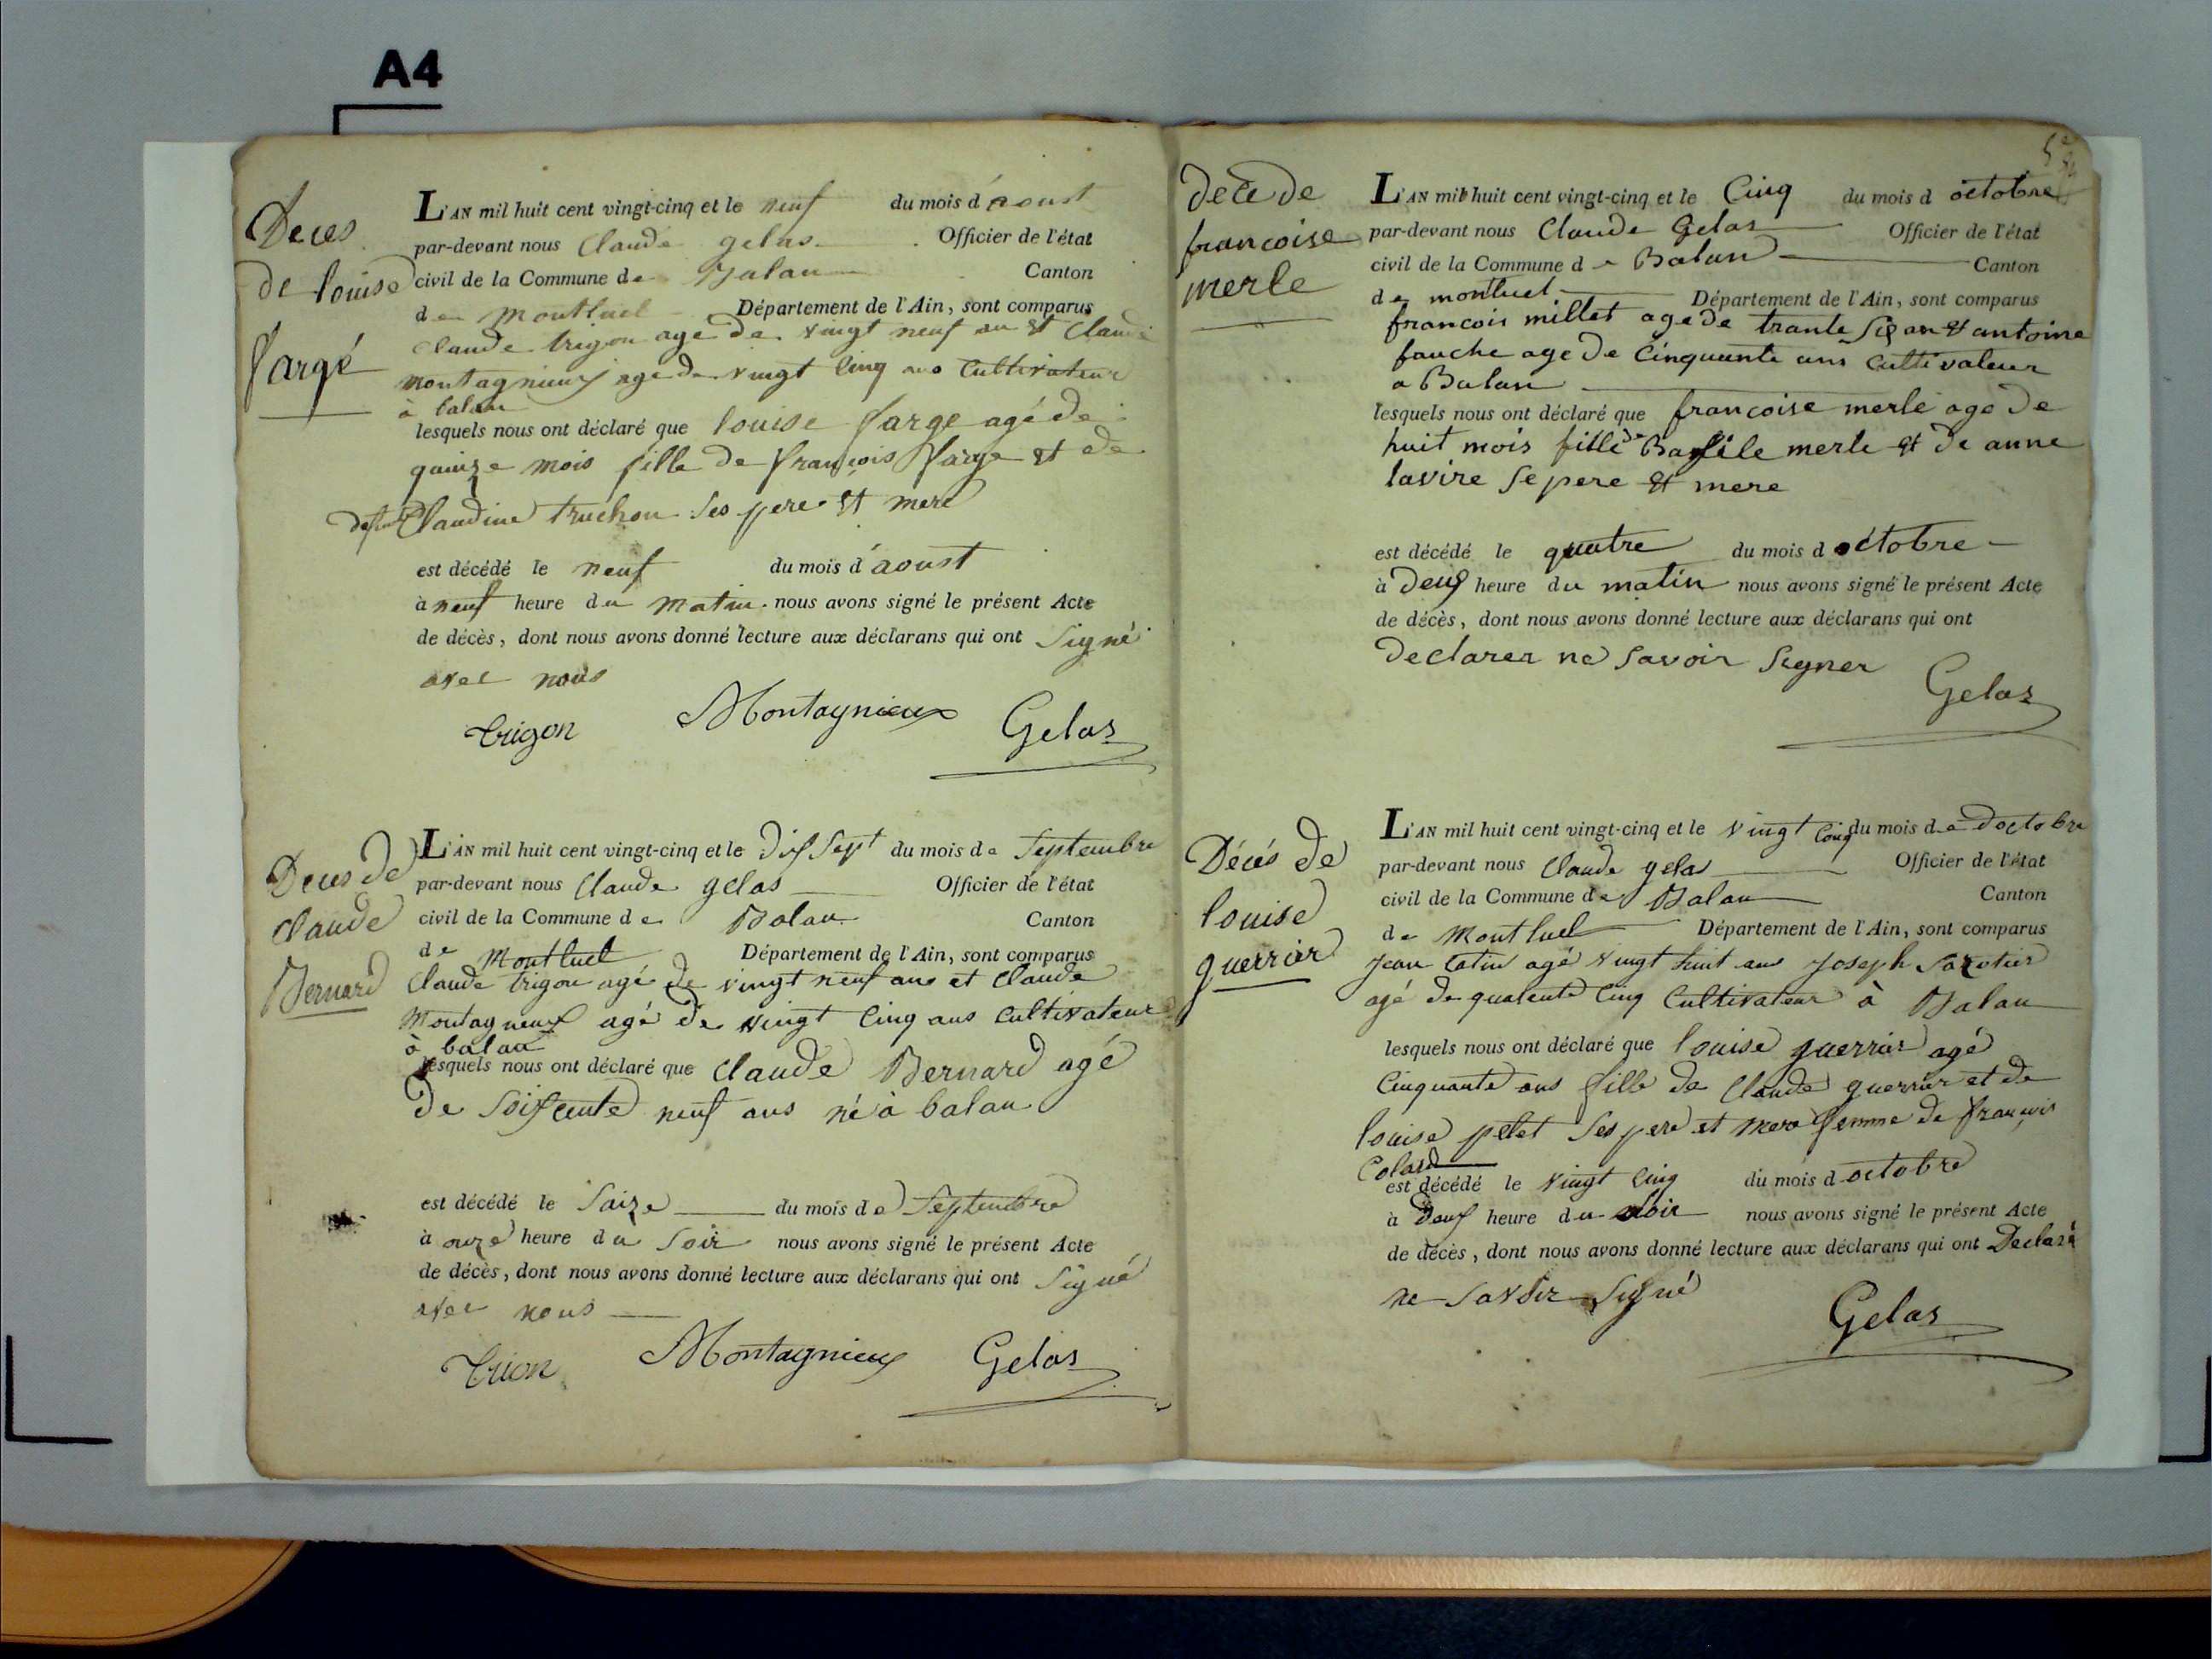 A4
Deces
de louise
farge
L'AN mil huit cent vingt-cinq et le neuf du mois d'aoust
par-devant nous Claude gelas Officier de l'état
civil de la Commune de Balan Canton
de Montluel Département de l'Ain, sont comparus
Claude trigon age de vingt neuf an et Claude
Montagnieux age de vingt cinq ans Cultivateur
à balan
lesquels nous ont déclaré que louise farge agé de
quinze mois fille de françois farge et de
defunte Claudine truchon ses pere et mere
est décédé le neuf du mois d'aoust
à neuf heure du matin nous avons signé le présent Acte
de décès, dont nous avons donné lecture aux déclarans qui ont Signé
avec nous
trigon Montagnieux Gelas
Deces de
Claude
Bernard
L'AN mil huit cent vingt-cinq et le dix Sept du mois de Septembre
par-devant nous Claude gelas Officier de l'état
civil de la Commune de Balan Canton
de Montluel Département de l'Ain, sont comparus
Claude trigon agé de vingt neuf ans et Claude
Montagneux agé de vingt cinq ans Cultivateur
à balan
lesquels nous ont déclaré que Claude Bernard agé
de Soixcente neuf ans né à balan
est décédé le Saize du mois de Septembre
à onze heure du Soir nous avons signé le présent Acte
de décès, dont nous avons donné lecture aux déclarans qui ont Signé
avec nous
trion Montagnieux Gelas
dece de
francoise
merle
L'AN mil huit cent vingt-cinq et le Cinq du mois d octobre
par-devant nous Claude Gelas Officier de l'état
civil de la Commune de Balan Canton
de montluel Département de l'Ain, sont comparus
francois millet age de trante Six an et antoine
fauche age de Cinquante ans Cultivateur
a Balan
lesquels nous ont déclaré que francoise merle age de
huit mois fille de Basile merle et de anne
lavire Se pere et mere
est décédé le quatre du mois d octobre
à deux heure du matin nous avons signé le présent Acte
de décès, dont nous avons donné lecture aux déclarans qui ont
declarer ne Savoir Signer
Gelas
Décés de
louise
guerrier
L'AN mil huit cent vingt-cinq et le vingt Cinq du mois de doctobre
par-devant nous Claude gelas Officier de l'état
civil de la Commune de Balan Canton
de Montluel Département de l'Ain, sont comparus
Jean Catin agé vingt huit ans Joseph
agé de quatente Cinq Cultivateur à Balan
lesquels nous ont déclaré que louise guerrier agé
Cinquante ans fille de Claude guerrier et de
louise pelet Ses pere et mere femme de françois
Colard
est décédé le vingt Cinq du mois d octobre
à deux heure du Soir nous avons signé le présent Acte
de décès, dont nous avons donné lecture aux déclarans qui ont Declaré
ne Savoir Signé
Gelas